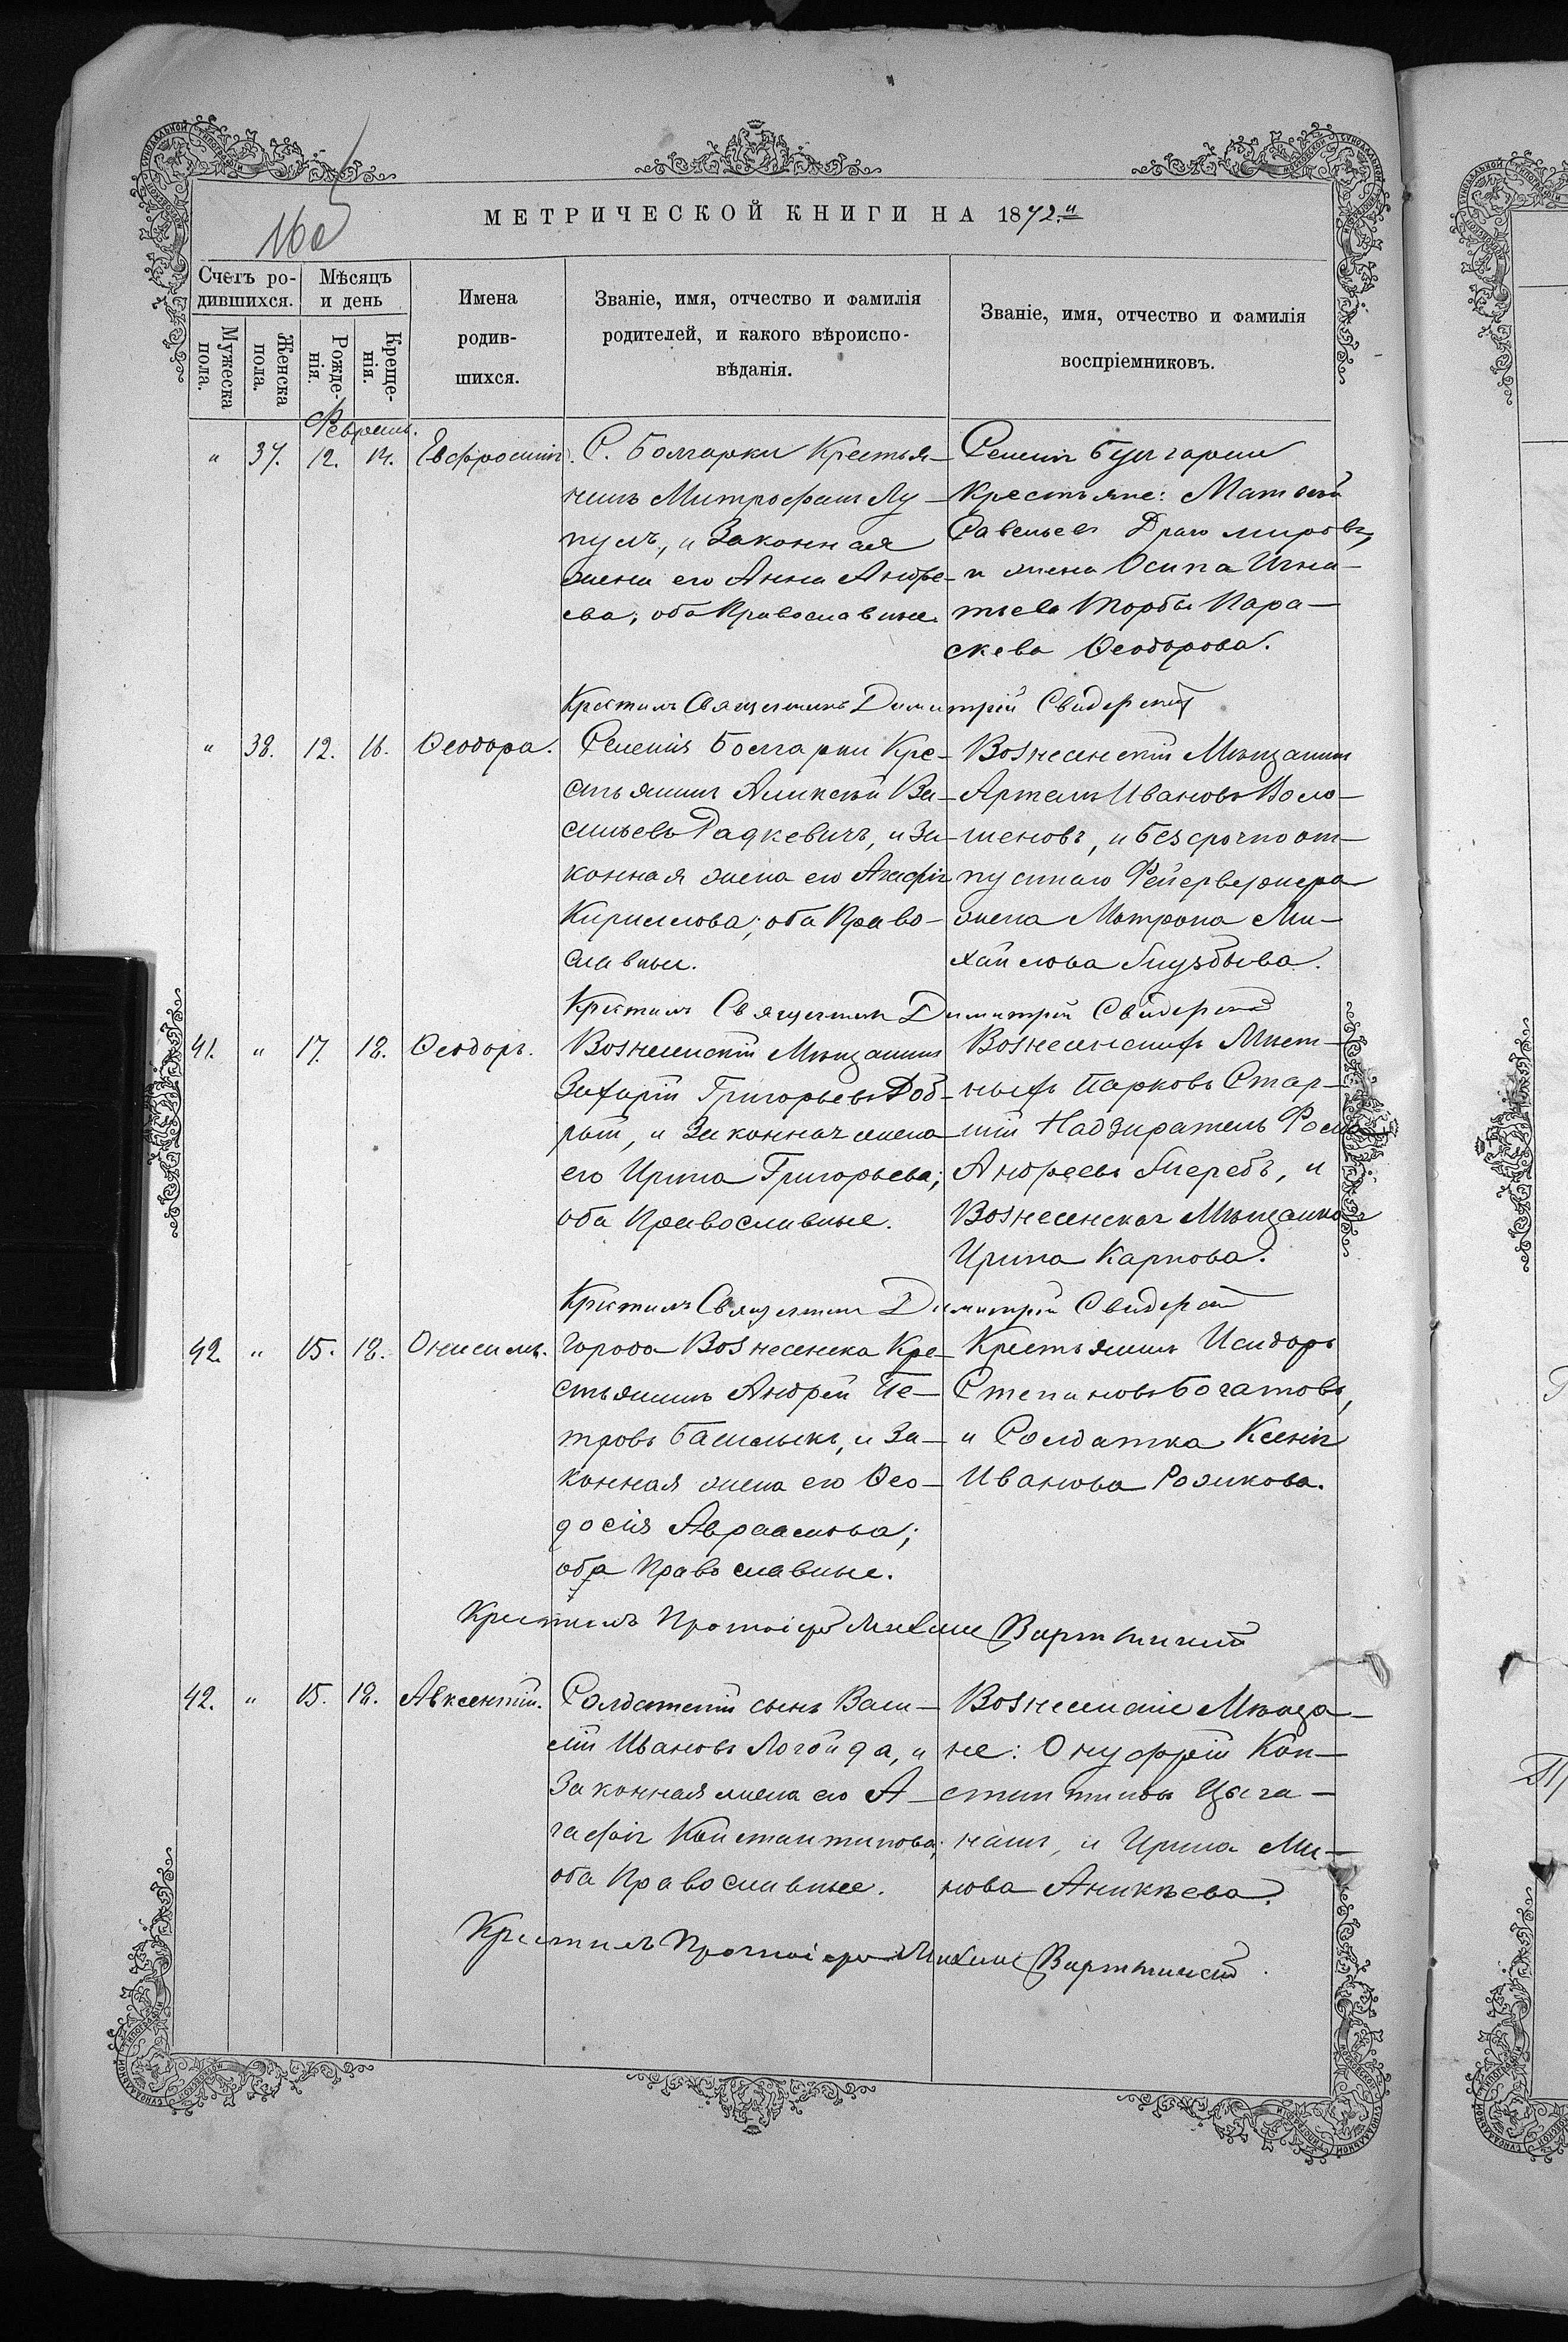 МЕТРИЧЕСКОЙ КНИГИ НА 1872.й
Счетъ ро-
дившихся.
Мѣсяцъ
и день
Мужеска
пола.
Женска
пола.
Рожде-
нія.
Креще-
нія.
Имена
родив-
шихся.
Званіе, имя, отчество и фамилія
родителей, и какого вѣроиспо-
вѣданія.
Званіе, имя, отчество и фамилія
воспріемниковъ.
Февраль.
" 37. 12. 14. Евфросинія.
С. Болгарки Крестья-
нинъ Митрофанъ Лу-
пулъ, и Законная
жена его Анна Андре-
ева; оба Православные.
Селенія Булгарки
Крестьяне: Матвей
Савельевъ Драгомировъ,
и жена Осипа Игна-
тьева Торбы Пара-
скева Ѳеодорова.
Крестилъ Священникъ Димитрій Свидерскій
" 38. 12. 16. Ѳеодора.
Селенія Болгарки Кре-
стьянинъ Алексѣй Ва-
сильевъ Радкевичъ, и За-
конная жена его Агафія
Кириллова; оба Право-
славные.
Вознесенскій Мѣщанинъ
Артемъ Ивановъ Воло-
шеновъ, и безсрочно от-
пускнаго Фейерверкера
жена Матрона Ми-
хайлова
Крестилъ Священникъ Димитрій Свидерскій
41. " 17. 18. Ѳеодоръ.
Вознесенскій Мѣщанинъ
Захарій Григорьевъ Доб-
рый, и Законная жена
его Ирина Григорьева;
оба Православные.
Вознесенскихъ Мѣст-
ныхъ Парковъ Стар-
шій Надзиратель
Андреевъ и
Вознесенская Мѣщанка
Ирина Карпова.
Крестилъ Священникъ Димитрій Свидерскій
42. " 15. 18. Онисимъ.
Города Вознесенска Кре-
стьянинъ Андрей Пе-
тровъ и За-
конная жена его Ѳео-
досія Авраамова;
оба Православные.
Крестьянинъ Исидоръ
Степановъ Богатовъ,
и Солдатка Ксенія
Иванова Рожкова.
Крестилъ Протоіерей Михаилъ
42. " 15. 18. Авксентій.
Солдатскій сынъ Васи-
лій Ивановъ Логойда, и
Законная жена его А-
гафія Константинова;
оба Православные.
Вознесенскіе Мѣща-
не: Онуфрій Кон-
стантиновъ Цыга-
нашъ, и Ирина Ми-
нова Аникѣева.
Крестилъ Протоіерей Михаилъ